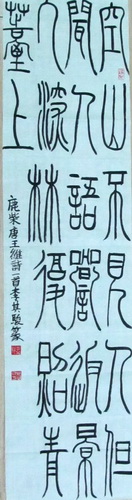 空山不見人但
聞人語響返景
入深林復照青
苔上
鹿柴唐王維詩一首李其駿篆